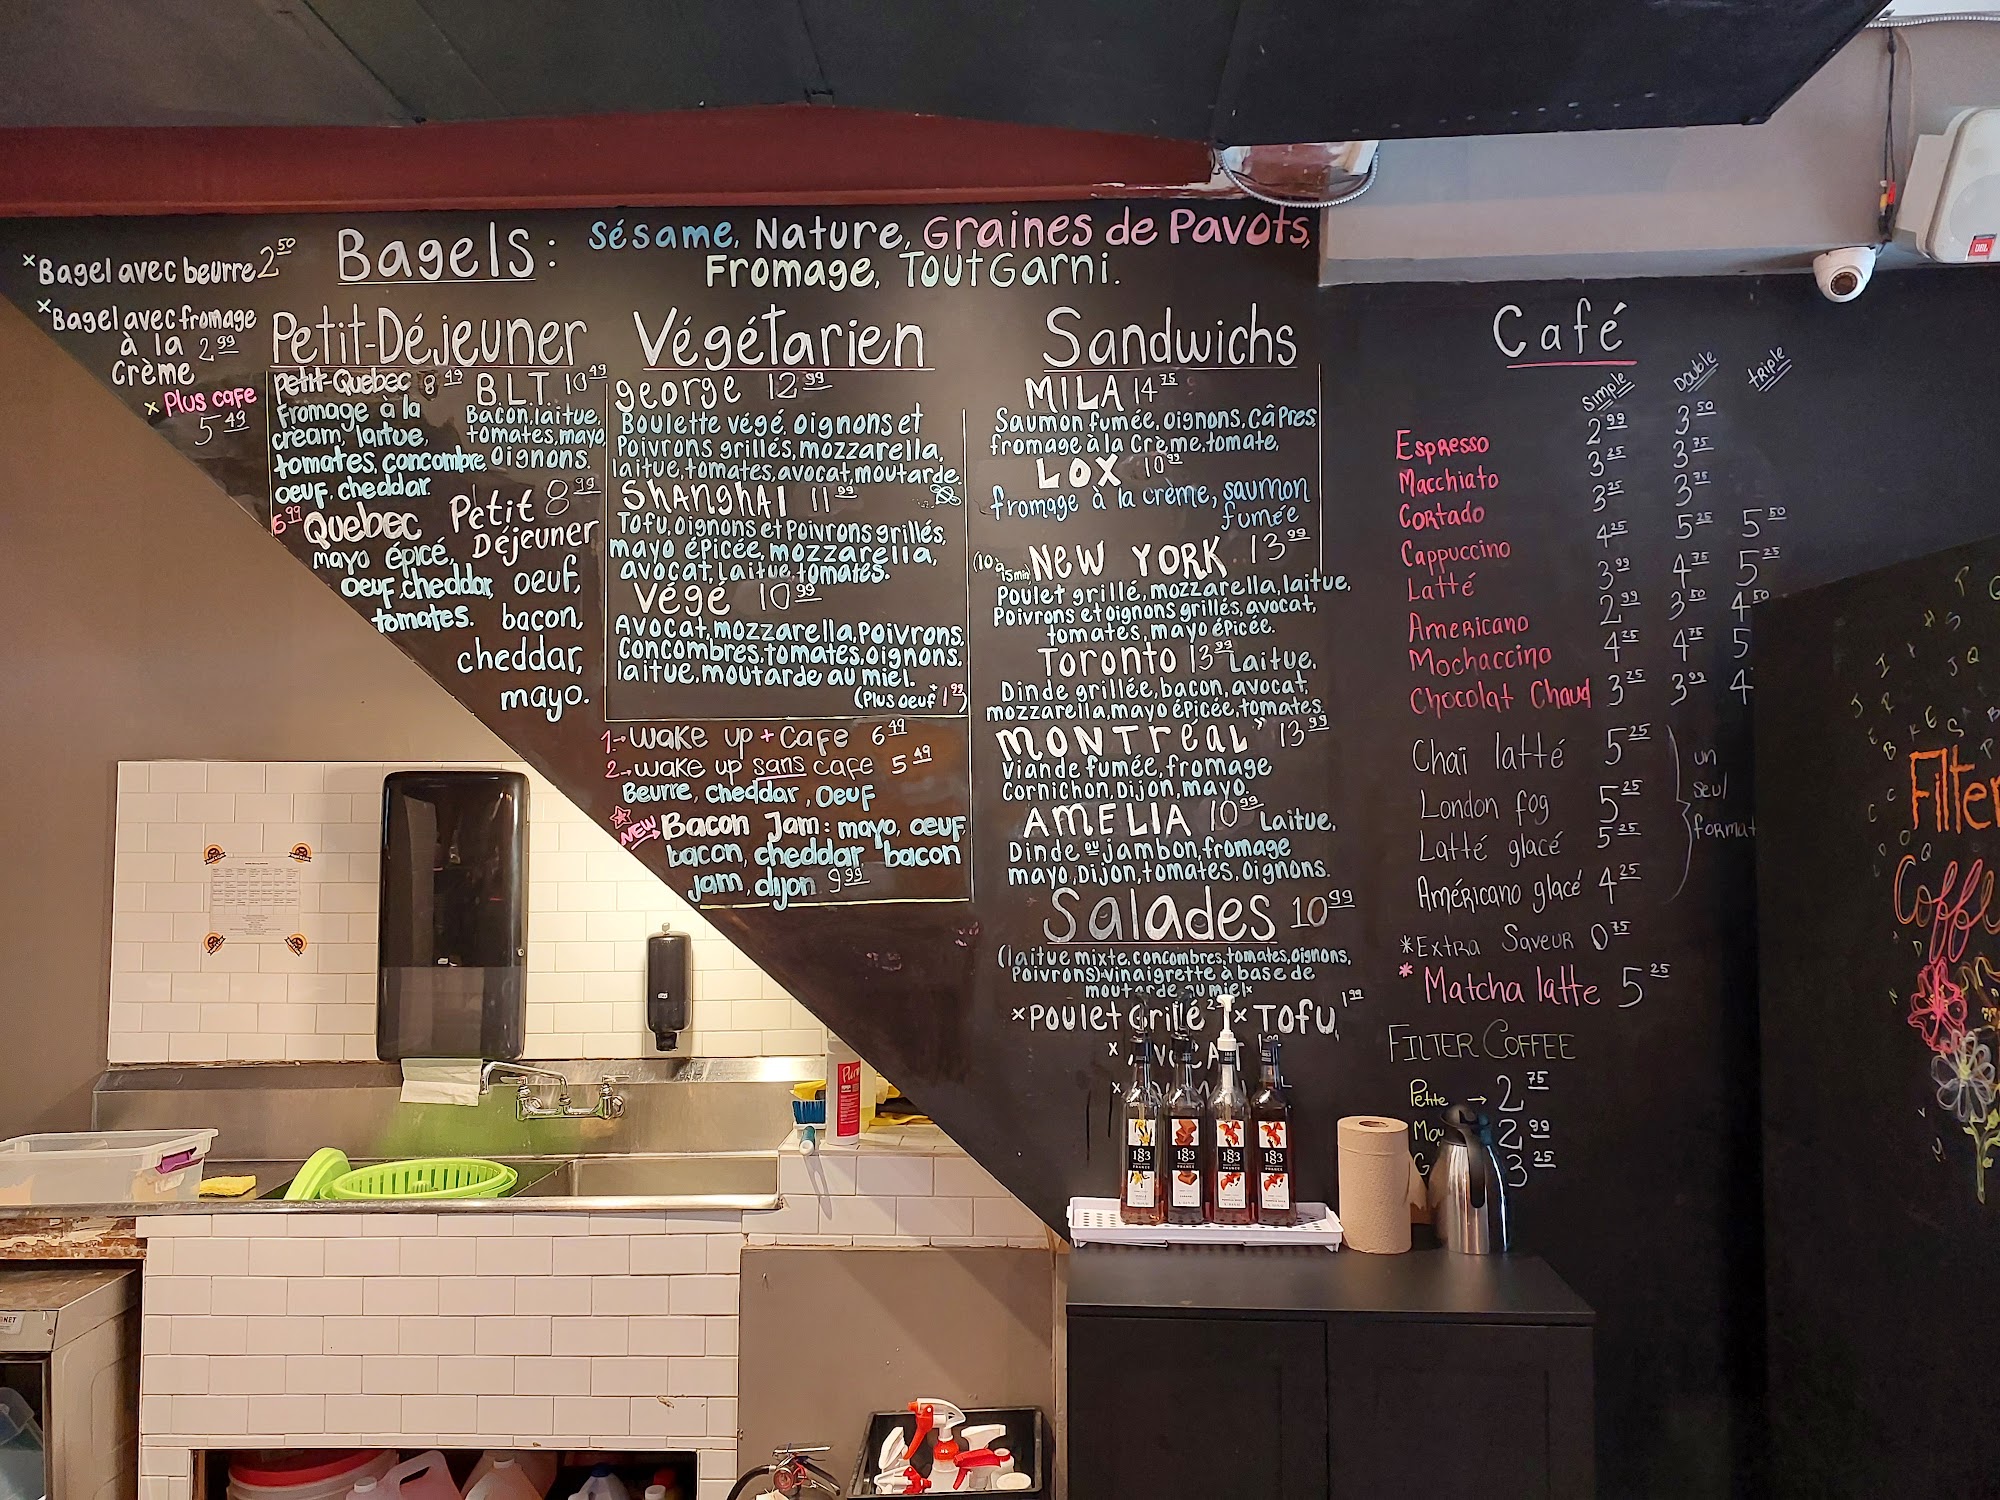 ×Bagel avec beurre 2.50
×Bagel avec fromage
à la 2.99
crème
× Plus cafe
5.49
Bagels: Sésame, Nature, Graines de Pavots,
Fromage, Tout Garni.
Petit-Déjeuner
Petit-Quebec 8.49
Fromage à la
cream, laitue,
tomates, concombre,
oeuf, cheddar.
B.L.T. 10.49
Bacon, laitue,
tomates, mayo,
oignons.
6.99
Quebec
mayo épicé,
oeuf, cheddar,
tomates.
Petit 8.99
Déjeuner
oeuf,
bacon,
cheddar,
mayo.
Végétarien
george 12.99
Boulette végé, oignons et
Poivrons grillés, mozzarella,
laitue, tomates, avocat, moutarde.
SHANGHAI 11.99
Tofu, oignons et Poivrons grillés,
mayo épicée, mozzarella,
avocat, laitue, tomates.
Végé 10.99
Avocat, mozzarella, Poivrons,
Concombres, tomates, oignons,
laitue, moutarde au miel.
(Plus oeuf + 1.99)
1→ wake up + cafe 6.49
2→ wake up sans cafe 5.49
Beurre, cheddar, oeuf
NEW
Bacon Jam: mayo, oeuf,
bacon, cheddar bacon
jam, dijon 9.99
Sandwichs
MILA 14.75
Saumon fumée, oignons, câpres,
fromage à la crème, tomate,
LOX 10.99
fromage à la crème, saumon
fumée
(10 à 15min) NEW YORK 13.99
Poulet grillé, mozzarella, laitue,
Poivrons et oignons grillés, avocat,
tomates, mayo épicée.
Toronto 13.99 Laitue,
Dinde grillée, bacon, avocat,
mozzarella, mayo épicée, tomates.
MONTréal 13.99
Viande fumée, fromage
Cornichon, Dijon, mayo.
AMELIA 10.99 Laitue,
Dinde ou jambon, fromage
mayo, Dijon, tomates, oignons.
Salades 10.99
(laitue mixte, concombres, tomates, oignons,
Poivrons) vinaigrette à base de
moutarde au miel
×Poulet Grillé × Tofu 1.99
Café
simple Double triple
Espresso 2.99 3.50
Macchiato 3.25 3.75
Cortado 3.25 3.75
Cappuccino 4.25 5.25 5.50
Latté 3.99 4.75 5.25
Americano 2.99 3.50 4.50
Mochaccino 4.25 4.75 5
Chocolat Chaud 3.25 3.99 4
Chaï latté 5.25
London fog 5.25
Latté glacé 5.25
Américano glacé 4.25
un
seul
format
*Extra Saveur 0.75
* Matcha latte 5.25
FILTER COFFEE
Petite → 2.75
2.99
3.25
Filter
Coffee
JBL
1883
1883
1883
1883